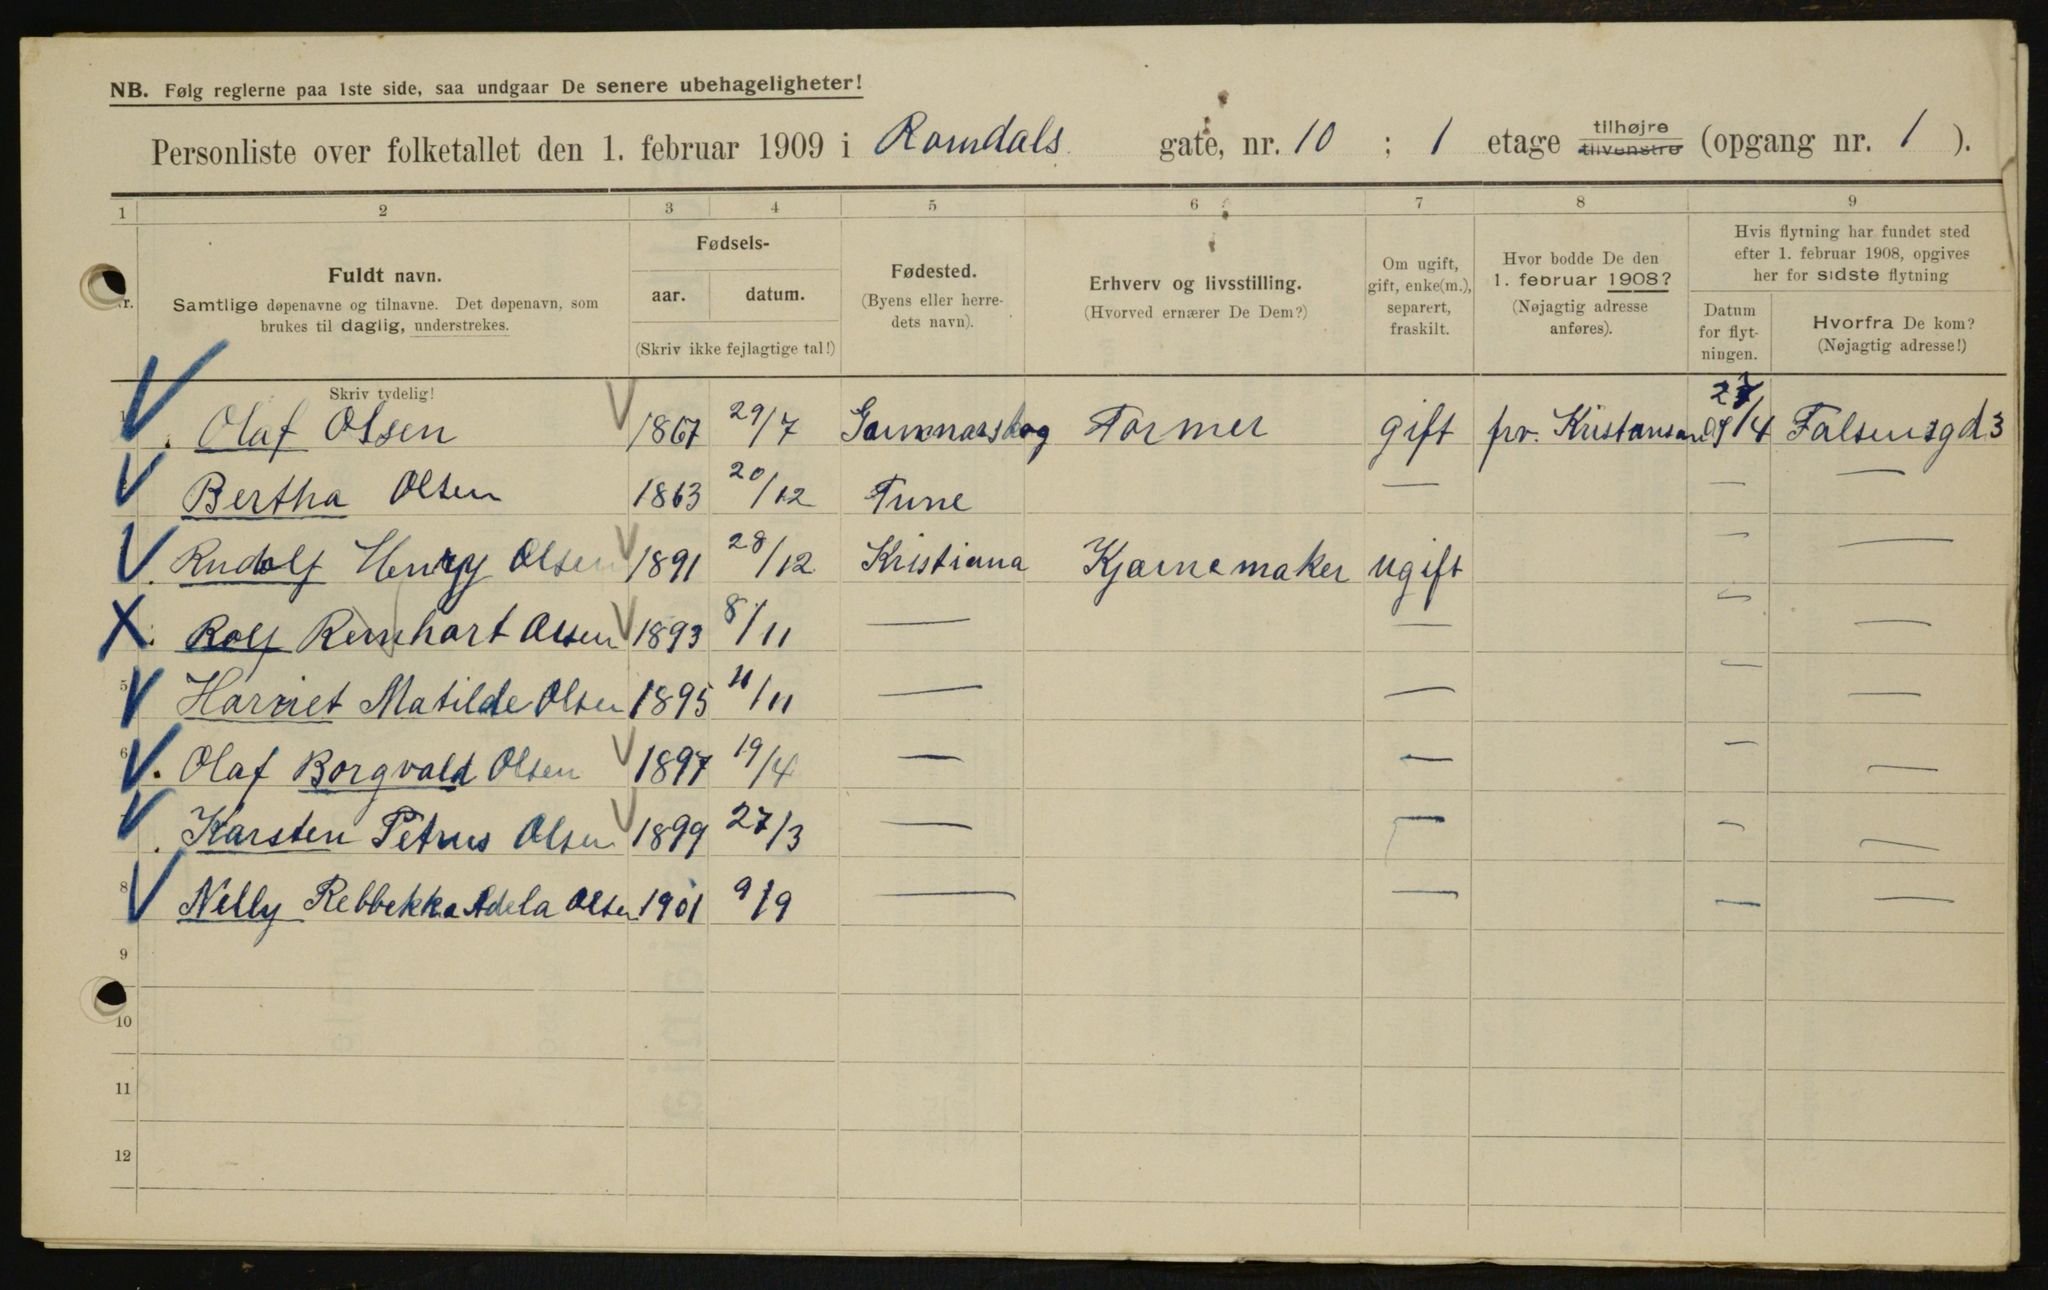 NB. Følg reglerne paa 1ste side, saa undgaar De senere ubehageligheter!
Personliste over folketallet den 1. februar 1909 i Romdals gate, nr. 10 ; 1 etage tilhøjre tilvenstre (opgang nr. 1 ).
1 2 3 4 5 6 7 8 9
Nr. Fuldt navn. Samtlige døpenavne og tilnavne. Det døpenavn, som brukes til daglig, understrekes.
Fødsels- aar. datum. (Skriv ikke fejlagtige tal!)
Fødested. (Byens eller herredets navn).
Erhverv og livsstilling. (Hvorved ernærer De Dem?)
Om ugift, gift, enke(m.), separert, fraskilt.
Hvor bodde De den 1. februar 1908? (Nøjagtig adresse anføres).
Hvis flytning har fundet sted efter 1. februar 1908, opgives her for sidste flytning
Datum for flytningen.
Hvorfra De kom? (Nøjagtig adresse!)
Skriv tydelig!
1 Olaf Olsen 1867 29/7 Gunnarskog Former gift pr. Kristansand /4 Falsensgd 3
Bertha Olsen 1863 20/12 Tune — — —
Rudolf Henry Olsen 1891 28/12 Kristiana Kjærnemaker ugift — —
Rolf Reinhart Olsen 1893 8/11 — — — —
5 Harriet Matilde Olsen 1895 11/11 — — — —
6 Olaf Borgvald Olsen 1897 19/4 — — — —
Karsten Petrus Olsen 1899 27/3 — — — —
8 Nelly Rebbekka Adela Olsen 1901 9/9 — — — —
9
10
11
12